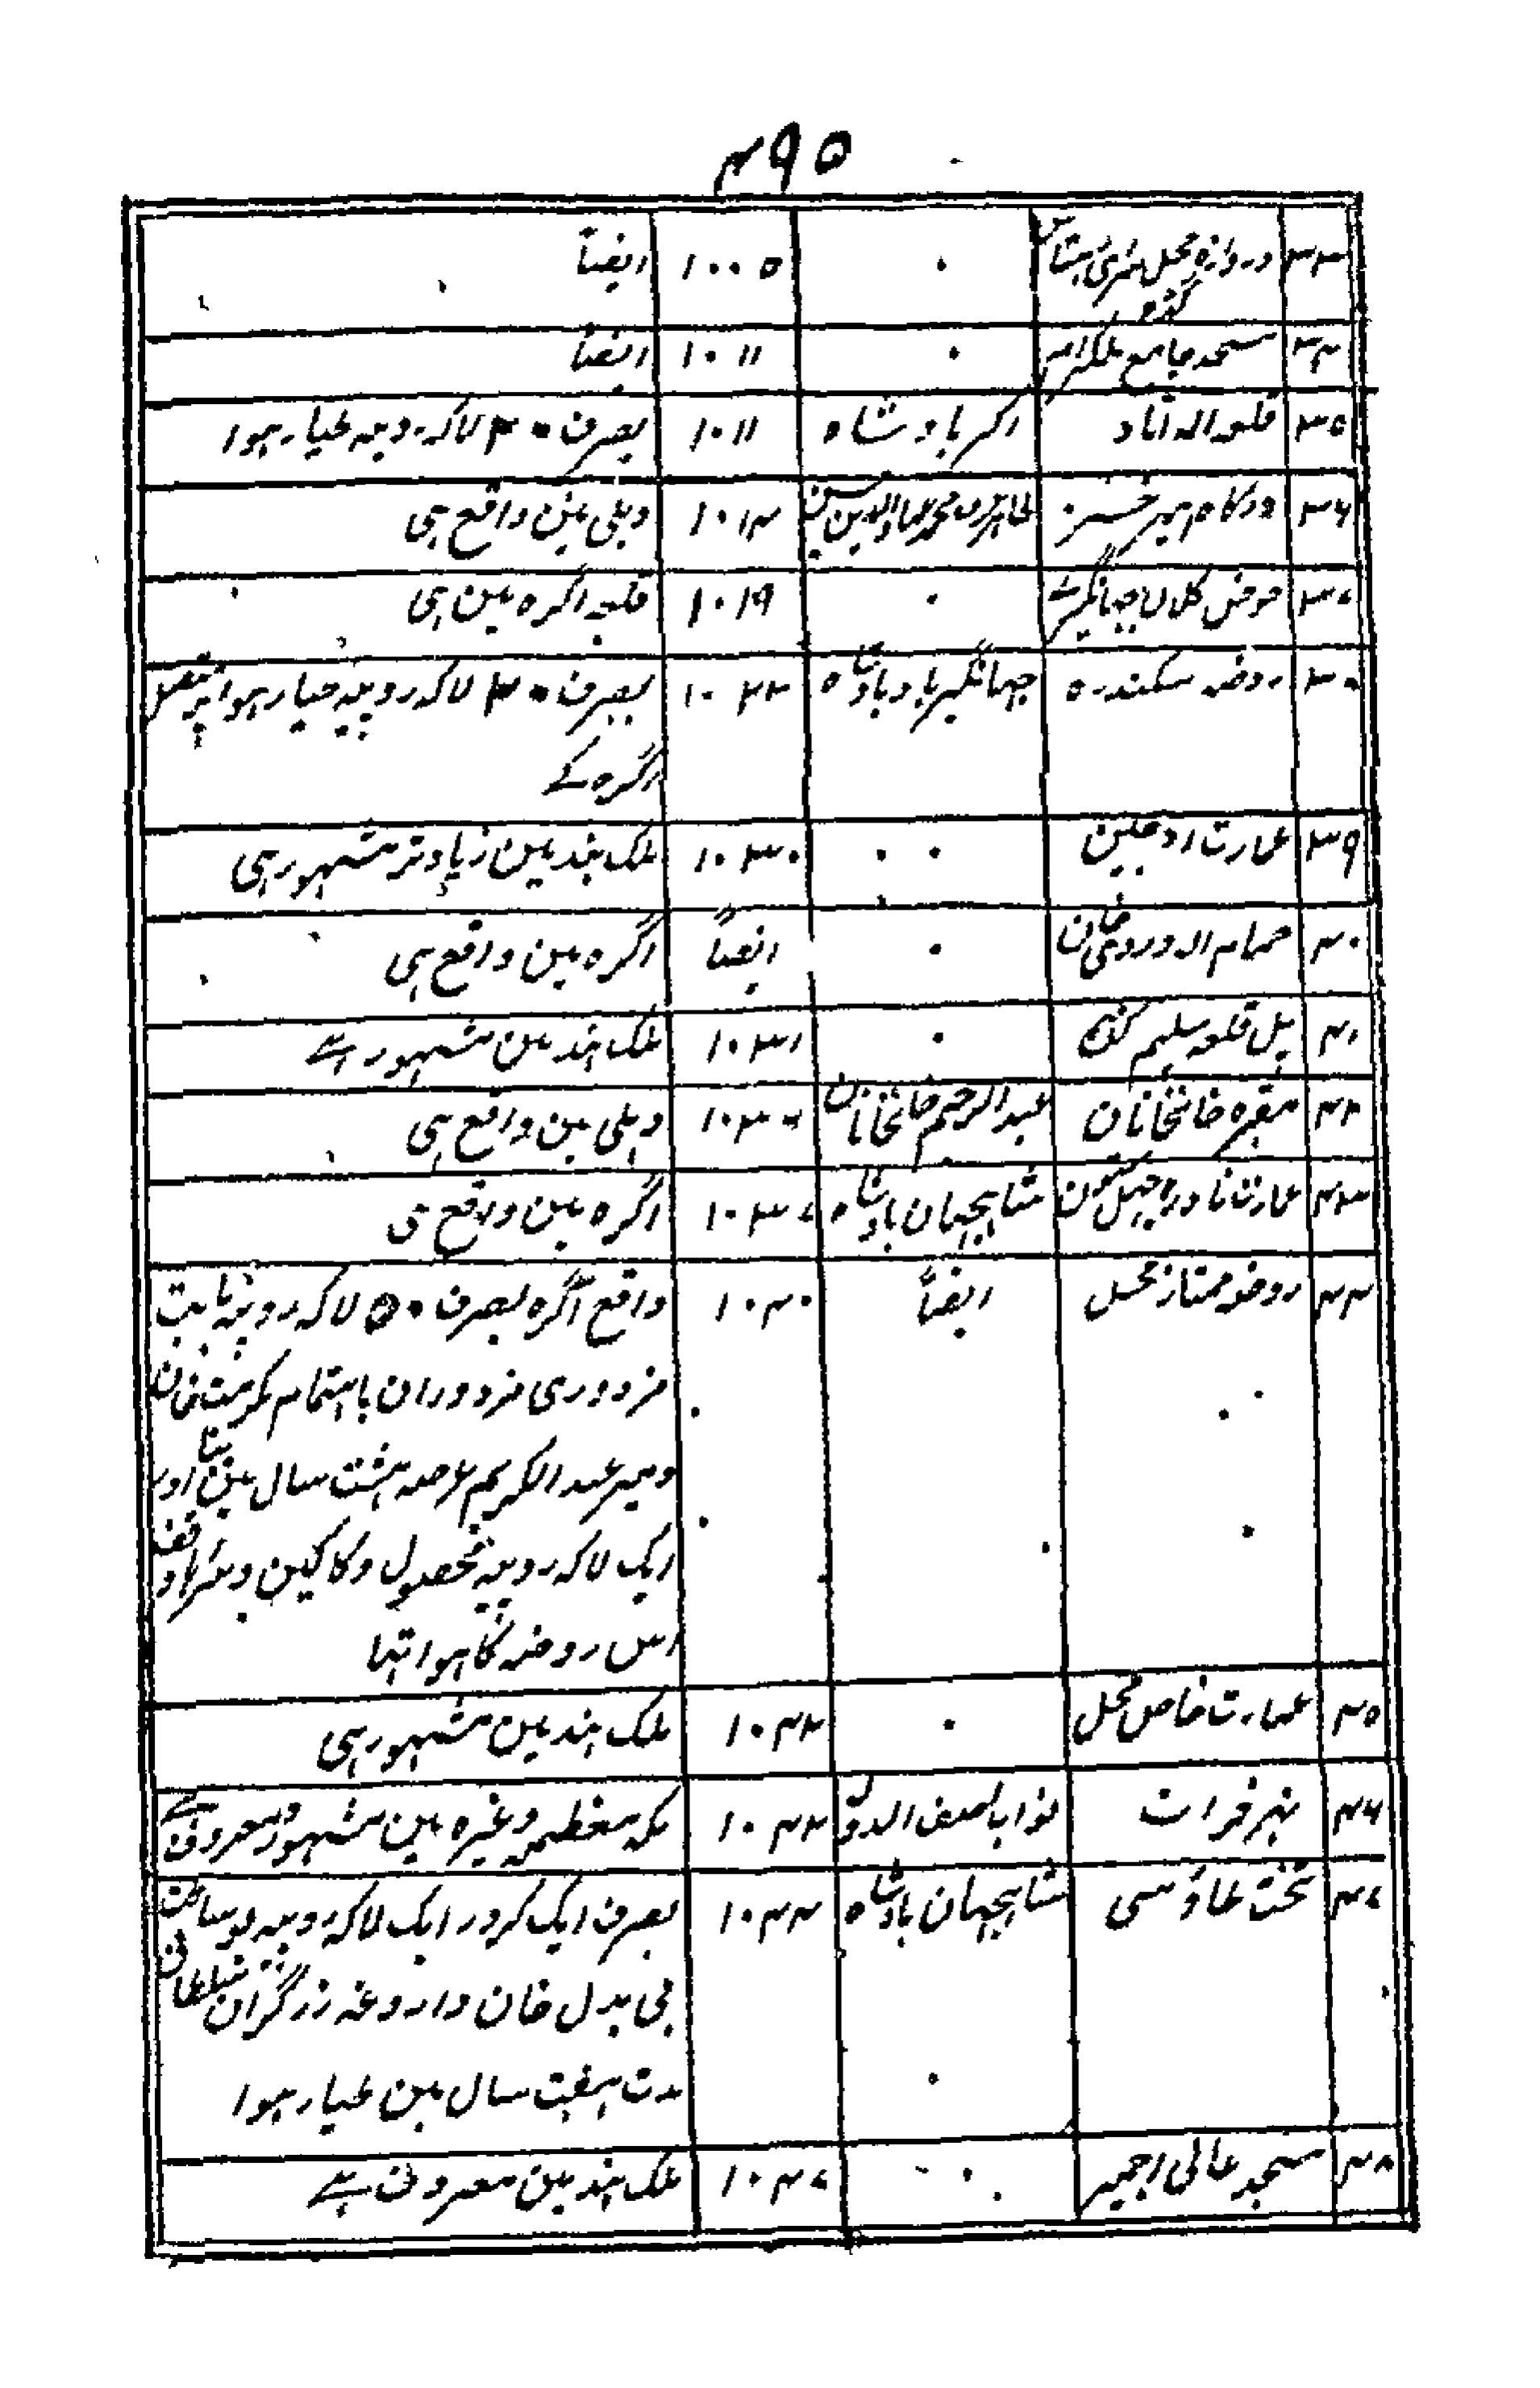 ۴۹۵
۳۳ دروازہ محل سرای ۰ ۱۰۰۵ ایضاً
۳۴ مسجد جامع بلگرام ۰ ۱۰۱۱ ایضاً
۳۵ قلعہ الہ آباد اکبر بادشاہ ۱۰۱۱ بصرف ۳۰ لاکہ روپیہ طیار ہوا
۳۶ درگاہ امیر خسرو ۱۰۱۴ دہلی مین واقع ہی
۳۷ حوض کلان جہانگیرے ۰ ۱۰۱۹ قلعہ اگرہ مین ہی
۳۸ روضہ سکندرہ جہانگیر بادشاہ ۱۰۲۲ بصرف ۳۰ لاکہ روپیہ طیار ہوا متصل
اگرہ کے
۳۹ عمارت اوجین ۰ ۱۰۳۰ ملک ہند مین زیادتر مشہور ہی
۴۰ حمام الہ وردی خان ۰ ایضاً اگرہ مین واقع ہی
۴۱ پل قلعہ سلیم گڈہ ۰ ۱۰۳۱ ملک ہند مین مشہور ہے
۴۲ مقبرہ خانخانان عبدالرحیم خانخانان ۱۰۳۶ دہلی مین واقع ہی
۴۳ عمارت نادرہ چہل ستون شاہجہان بادشاہ ۱۰۳۷ اگرہ مین واقع ہی
۴۴ روضہ ممتاز محل ایضاً ۱۰۴۰ واقع اگرہ بصرف ۵۰ لاکہ روپیہ بابت
مزدوری مزدوران باہتمام مکرمت خان
ومیر عبد الکریم عرصہ ہشت سال مین بنا اور
ایک لاکہ روپیہ محصول دکاکین وسرای وقف
اس روضہ کا ہوا تہا
۴۵ عمارت خاص محل ۰ ۱۰۴۲ ملک ہند مین مشہور ہی
۴۶ نہر فرات نواب اصف الدولہ ۱۰۴۲ مکہ معظمہ وغیرہ مین مشہور ومعروف ہے
۴۷ تخت طاؤسی شاہجہان بادشاہ ۱۰۴۴ بصرف ایک کرور ایک لاکہ روپیہ بوساطت
بی بدل خان داروغہ زرگران سلطانی
مدت ہفت سال مین طیار ہوا
۴۸ مسجد عالی اجمیر ۰ ۱۰۴۷ ملک ہند مین معروف ہے